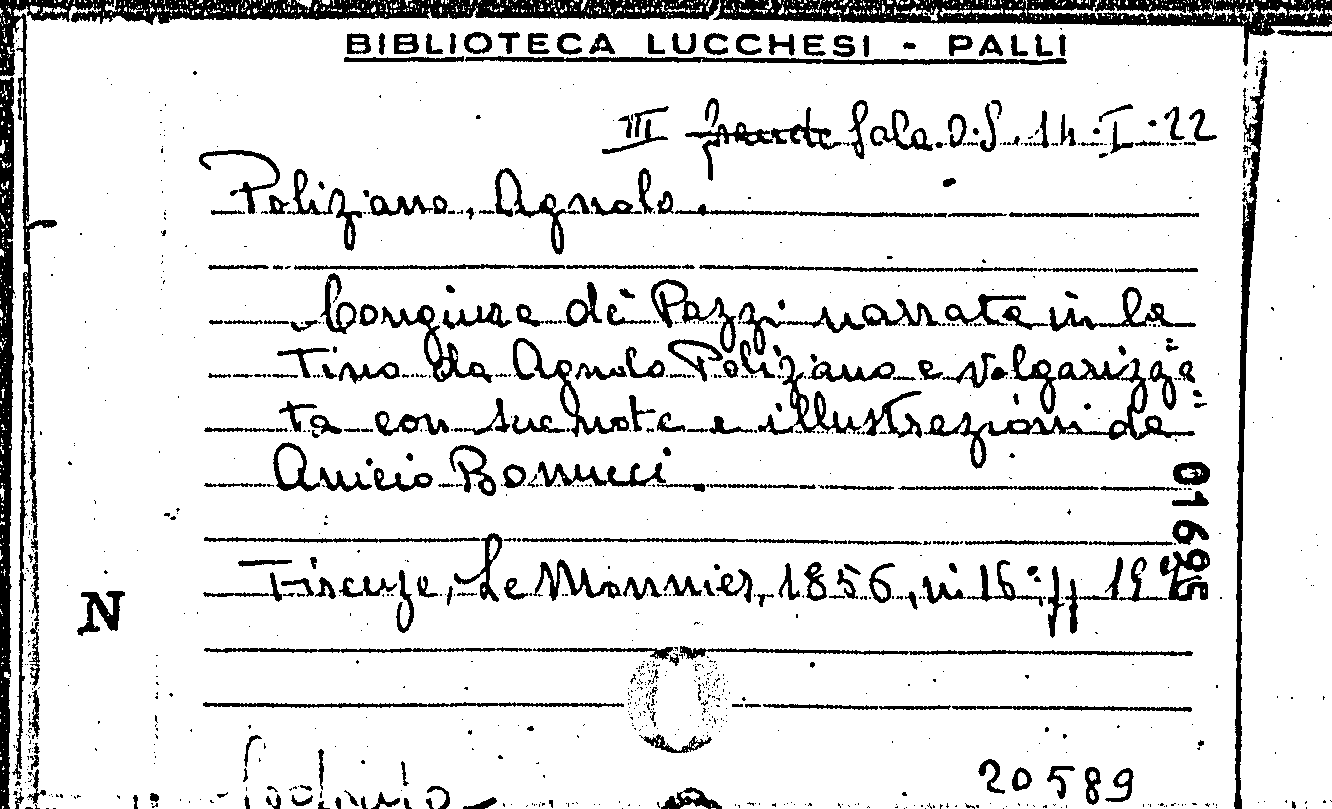 BIBLIOTECA LUCCHESI - PALLI
III grande Sala. D. S. 14. I. 22
Poliziano, Agnolo.
Congiura de' Pazzi narrata in la
tino da Agnolo Poliziano e volgarizza=
ta con sue note e illustrazioni da
Anicio Bonucci.
01695
Firenze, Le Monnier, 1856, in 16° pp
N
20589